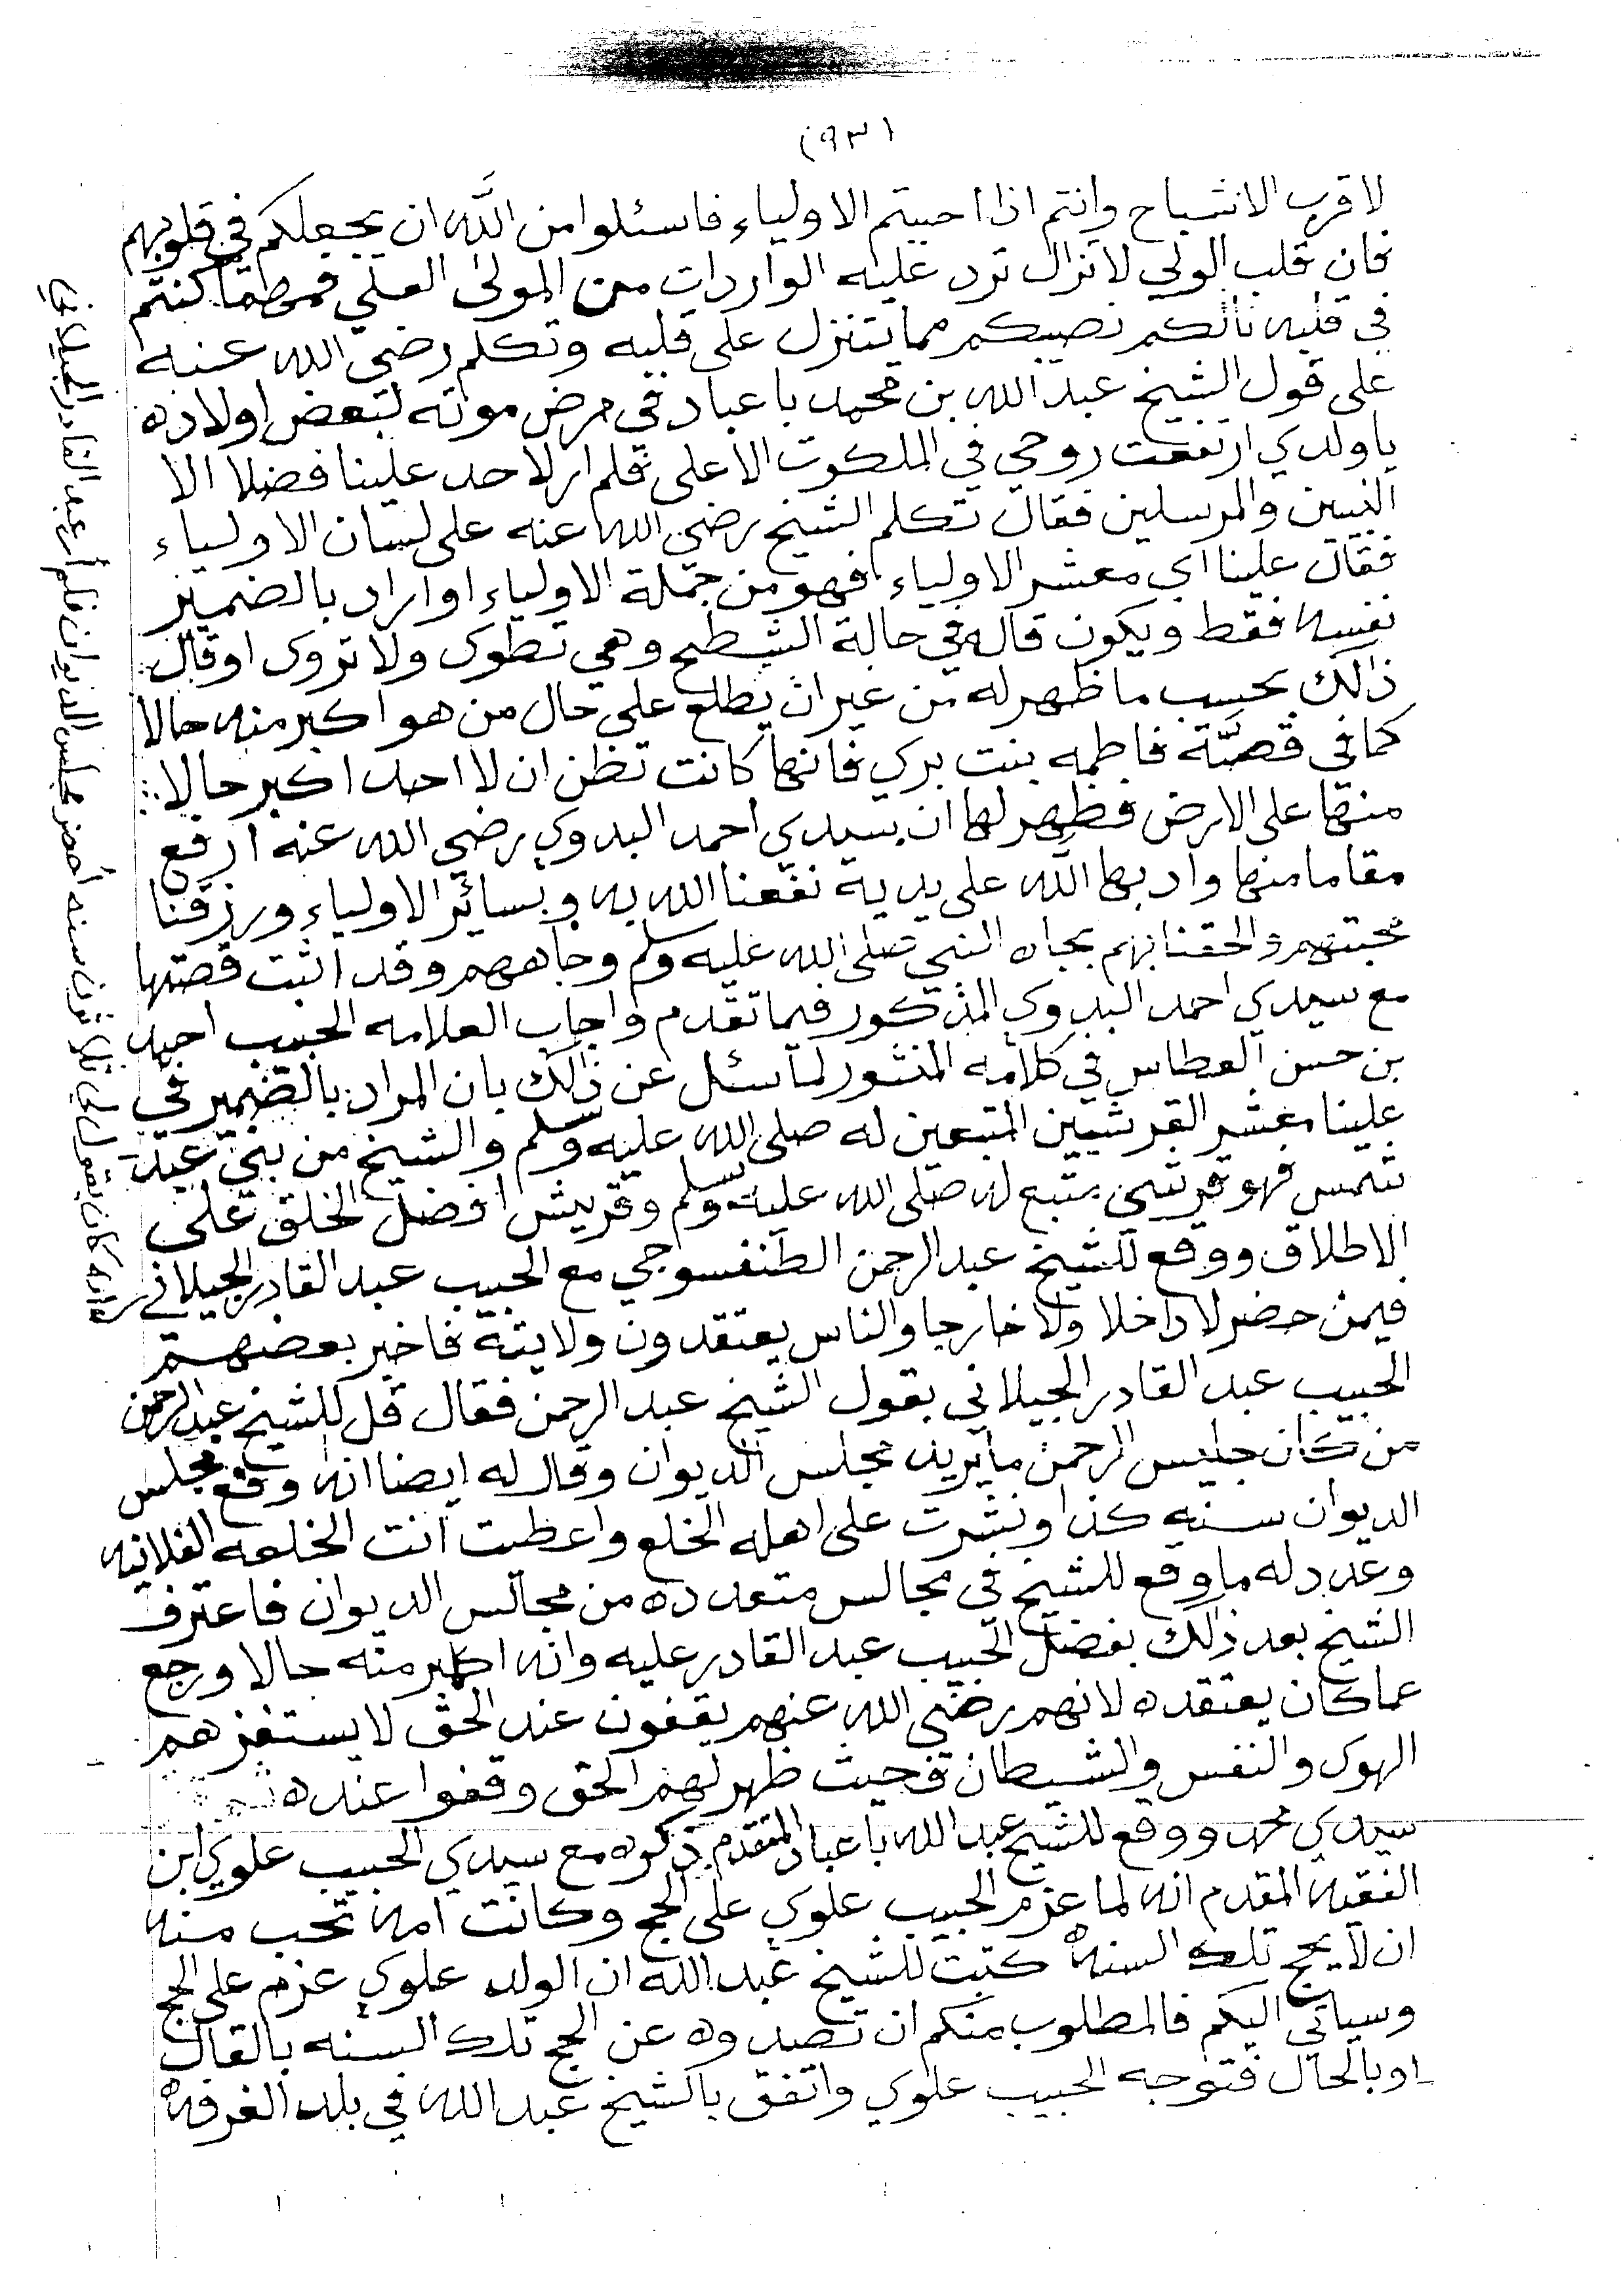 (٩٣)
لا قرب الاشباح وانتم اذا احببتم الاولياء فاسئلوا من اللَّه ان يجعلكم في قلوبهم
فان قلب الولي لا تزال ترد عليه الواردات من المولى العلي فمهما كنتم
في قلبه نالكم نصيبكم مما يتنزل على قلبه وتكلم رضي الله عنه
على قول الشيخ عبد الله بن محمد باعباد في مرض موته لبعض اولاده
ياولدي ارتفعت روحي في الملكوت الاعلى فلم ار لاحد علينا فضلا الا
النبيين والمرسلين فقال تكلم الشيخ رضي الله عنه على لسان الاولياء
فقال علينا اي معشر الاولياء فهو من جملة الاولياء او اراد بالضمير
نفسه فقط ويكون قاله في حالة الشطح وهي تطوى ولا تروى او قال
ذالك بحسب ما ظهر له من غير ان يطلع على حال من هو اكبر منه حالا
كما في قصَّة فاطمه بنت بري فانها كانت تظن ان لا احد اكبر حالا
منها على الارض فظهر لها ان سيدي احمد البدوي رضي الله عنه ارفع
مقاما منها وادبها الله على يديه نفعنا الله به وبسائر الاولياء ورزقنا
محبتهم والحقنا بهم بجاه النبي صلى الله عليه وسلم وجاههم وقد اثبت قصتها
مع سيدي احمد البدوي المذكور فيما تقدم واجاب العلامه الحبيب احمد
بن حسن العطاس في كلامه المنثور لما سئل عن ذالك بان المراد بالضمير في
علينا معشر القرشيين المتبعين له صلى الله عليه وسلم والشيخ من بني عبد
شمس فهو قرشي متبع له صلى الله عليه وسلم وقريش افضل الخلق على
الاطلاق ووقع للشيخ عبد الرحمن الطنفسوجي مع الحبيب عبد القادر الجيلاني
انه كان يقول لي ثلاثون سنه أحضر مجلس الديوان فلم أر عبد القادر الجيلاني
فيمن حضر لا داخلا ولا خارجا والناس يعتقدون ولايته فاخبر بعضهم
الحبيب عبد القادر الجيلاني بقول الشيخ عبد الرحمن فقال قل للشيخ عبد الرحمن
من كان جليس الرحمن ما يريد مجلس الديوان وقال له ايضا انه وقع مجلس
الديوان سنه كذا ونشرت على اهله الخلع واعطيت انت الخلعه الفلانيه
وعدد له ما وقع للشيخ في مجالس متعدده من مجالس الديوان فاعترف
الشيخ بعد ذالك بفضل الحبيب عبد القادر عليه وانه اكبر منه حالا ورجع
عما كان يعتقده لانهم رضي الله عنهم يقفون عند الحق لا يستفزهم
الهوى والنفس والشيطان فحيث ظهر لهم الحق وقفوا عنده
سيدي محمد ووقع للشيخ عبد الله باعباد المتقدم ذكره مع سيدي الحبيب علوي ابن
الفقيه المقدم انه لما عزم الحبيب علوي على الحج وكانت امه تحب منه
ان لا يحج تلك السنه كتبت للشيخ عبد الله ان الولد علوي عزم على الحج
وسياتي اليكم فالمطلوب منكم ان تصدوه عن الحج تلك السنه بالقال
او بالحال فتوجه الحبيب علوي واتفق بالشيخ عبد الله في بلد الغرفه